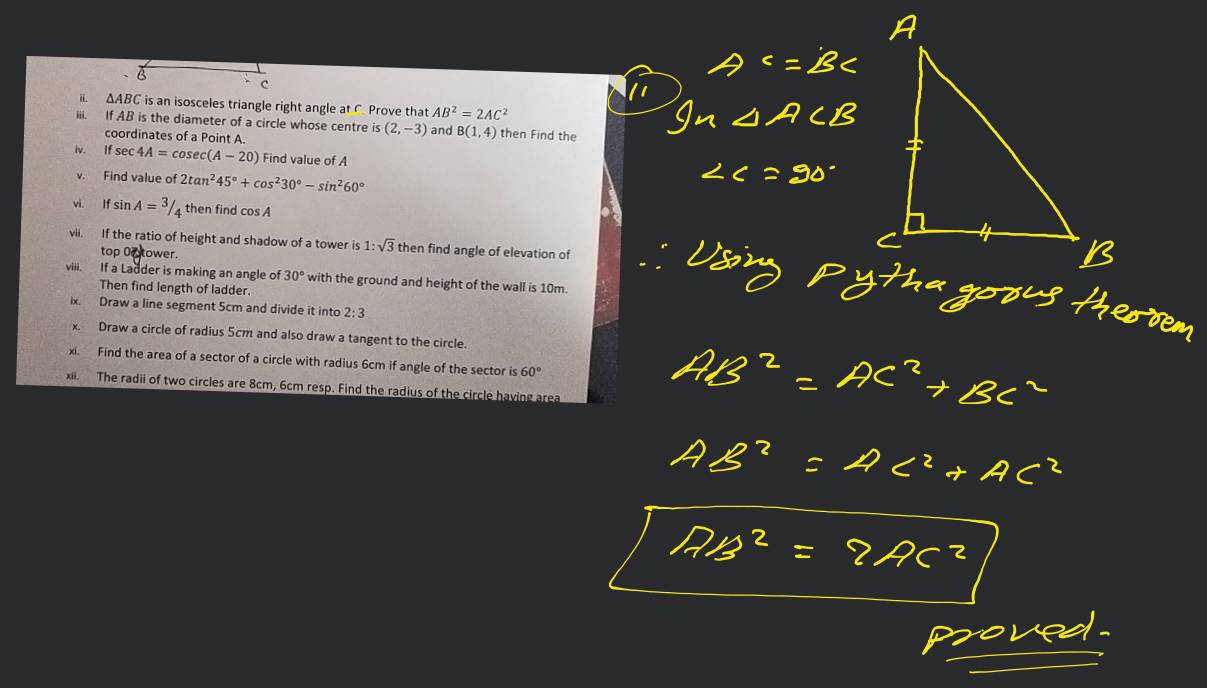 B
C
ii. ΔABC is an isosceles triangle right angle at C. Prove that AB² = 2AC²
iii. If AB is the diameter of a circle whose centre is (2, −3) and B(1, 4) then Find the
coordinates of a Point A.
iv. If sec 4A = cosec(A − 20) Find value of A
v. Find value of 2tan²45° + cos²30° − sin²60°
vi. If sin A = 3/4 then find cos A
vii. If the ratio of height and shadow of a tower is 1: √3 then find angle of elevation of
top tower.
viii. If a Ladder is making an angle of 30° with the ground and height of the wall is 10m.
Then find length of ladder.
ix. Draw a line segment 5cm and divide it into 2: 3
x. Draw a circle of radius 5cm and also draw a tangent to the circle.
xi. Find the area of a sector of a circle with radius 6cm if angle of the sector is 60°
xii. The radii of two circles are 8cm, 6cm resp. Find the radius of the circle having area
11
AC = BC
In ΔACB
∠C = 90°
A
C
B
∴ Using Pythagorus theorem
AB² = AC² + BC²
AB² = AC² + AC²
AB² = 2AC²
proved.